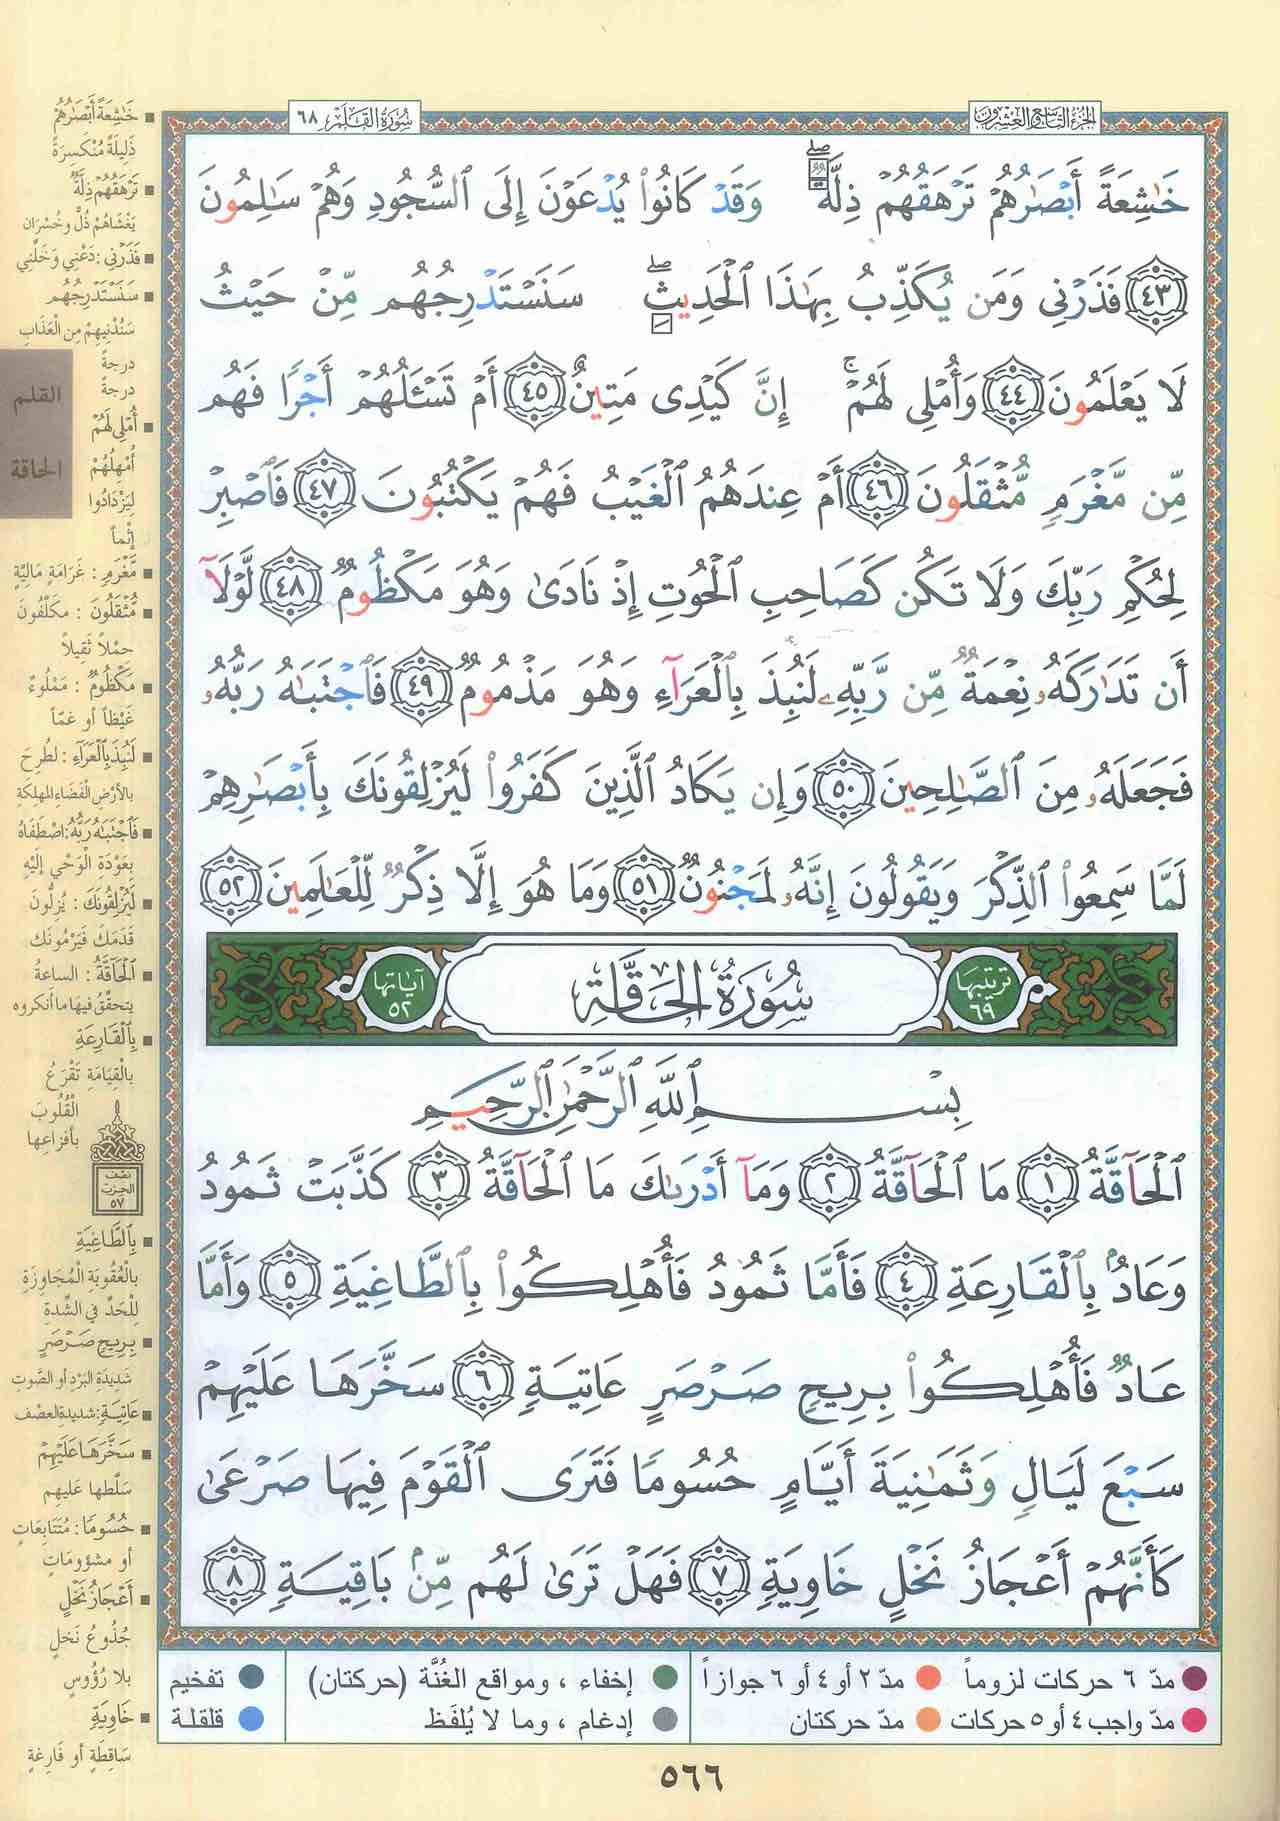 الجزء التاسع والعشرون
سورة القلم ٦٨
خَٰشِعَةً أَبۡصَٰرُهُمۡ تَرۡهَقُهُمۡ ذِلَّةٞۖ وَقَدۡ كَانُواْ يُدۡعَوۡنَ إِلَى ٱلسُّجُودِ وَهُمۡ سَٰلِمُونَ
٤٣ فَذَرۡنِي وَمَن يُكَذِّبُ بِهَٰذَا ٱلۡحَدِيثِۖ سَنَسۡتَدۡرِجُهُم مِّنۡ حَيۡثُ
لَا يَعۡلَمُونَ ٤٤ وَأُمۡلِي لَهُمۡۚ إِنَّ كَيۡدِي مَتِينٌ ٤٥ أَمۡ تَسۡـَٔلُهُمۡ أَجۡرٗا فَهُم
مِّن مَّغۡرَمٖ مُّثۡقَلُونَ ٤٦ أَمۡ عِندَهُمُ ٱلۡغَيۡبُ فَهُمۡ يَكۡتُبُونَ ٤٧ فَٱصۡبِرۡ
لِحُكۡمِ رَبِّكَ وَلَا تَكُن كَصَاحِبِ ٱلۡحُوتِ إِذۡ نَادَىٰ وَهُوَ مَكۡظُومٞ ٤٨ لَّوۡلَآ
أَن تَدَٰرَكَهُۥ نِعۡمَةٞ مِّن رَّبِّهِۦ لَنُبِذَ بِٱلۡعَرَآءِ وَهُوَ مَذۡمُومٞ ٤٩ فَٱجۡتَبَٰهُ رَبُّهُۥ
فَجَعَلَهُۥ مِنَ ٱلصَّٰلِحِينَ ٥٠ وَإِن يَكَادُ ٱلَّذِينَ كَفَرُواْ لَيُزۡلِقُونَكَ بِأَبۡصَٰرِهِمۡ
لَمَّا سَمِعُواْ ٱلذِّكۡرَ وَيَقُولُونَ إِنَّهُۥ لَمَجۡنُونٞ ٥١ وَمَا هُوَ إِلَّا ذِكۡرٞ لِّلۡعَٰلَمِينَ ٥٢
ترتيبها ٦٩
سُورَةُ الحَاقَّة
آياتها ٥٢
بِسۡمِ ٱللَّهِ ٱلرَّحۡمَٰنِ ٱلرَّحِيمِ
ٱلۡحَآقَّةُ ١ مَا ٱلۡحَآقَّةُ ٢ وَمَآ أَدۡرَىٰكَ مَا ٱلۡحَآقَّةُ ٣ كَذَّبَتۡ ثَمُودُ
وَعَادُۢ بِٱلۡقَارِعَةِ ٤ فَأَمَّا ثَمُودُ فَأُهۡلِكُواْ بِٱلطَّاغِيَةِ ٥ وَأَمَّا
عَادٞ فَأُهۡلِكُواْ بِرِيحٖ صَرۡصَرٍ عَاتِيَةٖ ٦ سَخَّرَهَا عَلَيۡهِمۡ
سَبۡعَ لَيَالٖ وَثَمَٰنِيَةَ أَيَّامٍ حُسُومٗا فَتَرَى ٱلۡقَوۡمَ فِيهَا صَرۡعَىٰ
كَأَنَّهُمۡ أَعۡجَازُ نَخۡلٍ خَاوِيَةٖ ٧ فَهَلۡ تَرَىٰ لَهُم مِّنۢ بَاقِيَةٖ ٨
خَٰشِعَةً أَبۡصَٰرُهُمۡ
ذَلِيلَةً مُنْكَسِرَةً
تَرۡهَقُهُمۡ ذِلَّةٞ
يَغْشَاهُمْ ذُلٌّ وخُسْرَان
فَذَرۡنِي : دَعْنِي وَخَلِّنِي
سَنَسۡتَدۡرِجُهُم
سَنُدْنِيهِمْ مِن الْعَذَابِ
درجةً
درجةً
أُمۡلِي لَهُمۡ
أُمْهِلُهُمْ
لِيَزْدَادُوا
إثْماً
مَّغۡرَمٖ : غَرَامَةٍ مَالِيَّةٍ
مُّثۡقَلُونَ : مكَلَّفُونَ
حِمْلاً ثَقِيلاً
مَكۡظُومٞ : مَمْلُوءٌ
غَيْظاً أو غمّاً
لَنُبِذَ بِٱلۡعَرَآءِ : لطُرِحَ
بالأرْضِ الْفَضَاءِ المهلِكَةِ
فَٱجۡتَبَٰهُ رَبُّهُۥ : اصْطَفَاهُ
بِعَوْدَةِ الْوَحْيِ إلَيْهِ
لَيُزۡلِقُونَكَ : يُزِلُّونَ
قَدَمَكَ فَيَرْمُونَك
ٱلۡحَآقَّةُ : الساعةُ
يتحقّقُ فيهَا ما أنكروه
بِٱلۡقَارِعَةِ
بالقِيَامَةِ تَقْرَعُ
الْقُلُوبَ
بأفزاعِها
بِٱلطَّاغِيَةِ
بالعُقُوبَةِ الْمُجَاوِزَةِ
لِلْحَدِّ في الشِّدةِ
بِرِيحٖ صَرۡصَرٍ
شَدِيدَةِ البَرْدِ أو الصَّوتِ
عَاتِيَةٖ : شديدةِ العصْفِ
سَخَّرَهَا عَلَيۡهِمۡ
سَلَّطها عليهم
حُسُومٗا : مُتَتَابِعَاتٍ
أو مشؤومَاتٍ
أَعۡجَازُ نَخۡلٍ
جُذُوعُ نَخلٍ
بلا رُؤُوسٍ
خَاوِيَةٖ
سَاقِطَةٍ أو فَارِغَةٍ
القلم
الحاقة
نصف
الحزب
٥٧
مدّ ٦ حركات لزوماً
مدّ ٢ أو ٤ أو ٦ جوازاً
إخفاء ، ومواقع الغُنَّة (حركتان)
تفخيم
مدّ واجب ٤ أو ٥ حركات
مدّ حركتان
إدغام ، وما لا يُلفَظ
قلقلة
٥٦٦